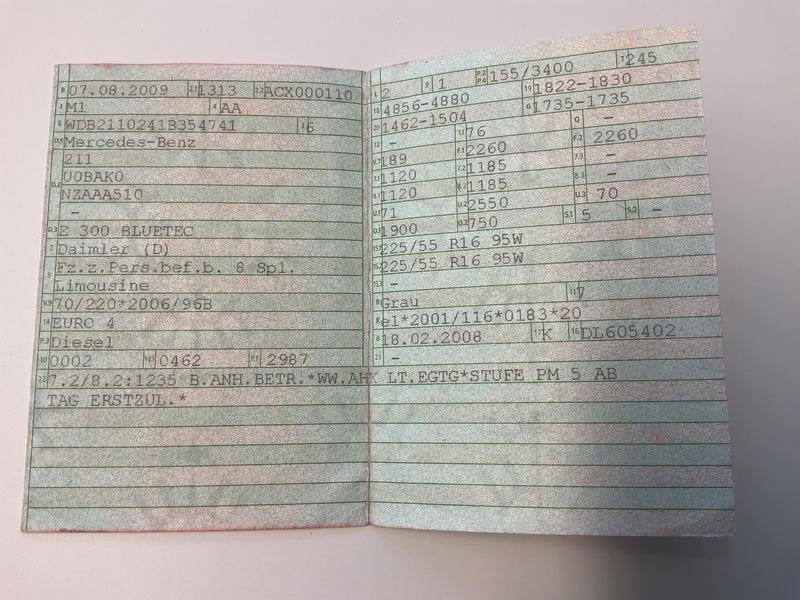 B 07.08.2009 2.1 1313 2.2 ACX000110
J M1 4 AA
E WDB2110241B354741 3 6
D.1 Mercedes-Benz
211
D.2 U0BAK0
NZAAA510
-
D.3 E 300 BLUETEC
2 Daimler (D)
5 Fz.z.Pers.bef.b. 8 Spl.
Limousine
V.9 70/220*2006/96B
14 EURO 4
P.3 Diesel
10 0002 14.1 0462 P.1 2987
22 7.2/8.2:1235 B.ANH.BETR.*WW.AHK LT.EGTG*STUFE PM 5 AB
TAG ERSTZUL.*
L 2 9 1 P.2 P.4 155/3400 T 245
18 4856-4880 19 1822-1830
20 1462-1504 G 1735-1735
12 - 13 76 Q -
V.7 189 F.1 2260 F.2 2260
7.1 1120 7.2 1185 7.3 -
8.1 1120 8.2 1185 8.3 -
U.1 71 U.2 2550 U.3 70
O.1 1900 O.2 750 S.1 5 S.2 -
15.1 225/55 R16 95W
15.2 225/55 R16 95W
15.3 -
R Grau 11 7
K e1*2001/116*0183*20
6 18.02.2008 17 K 16 DL605402
21 -